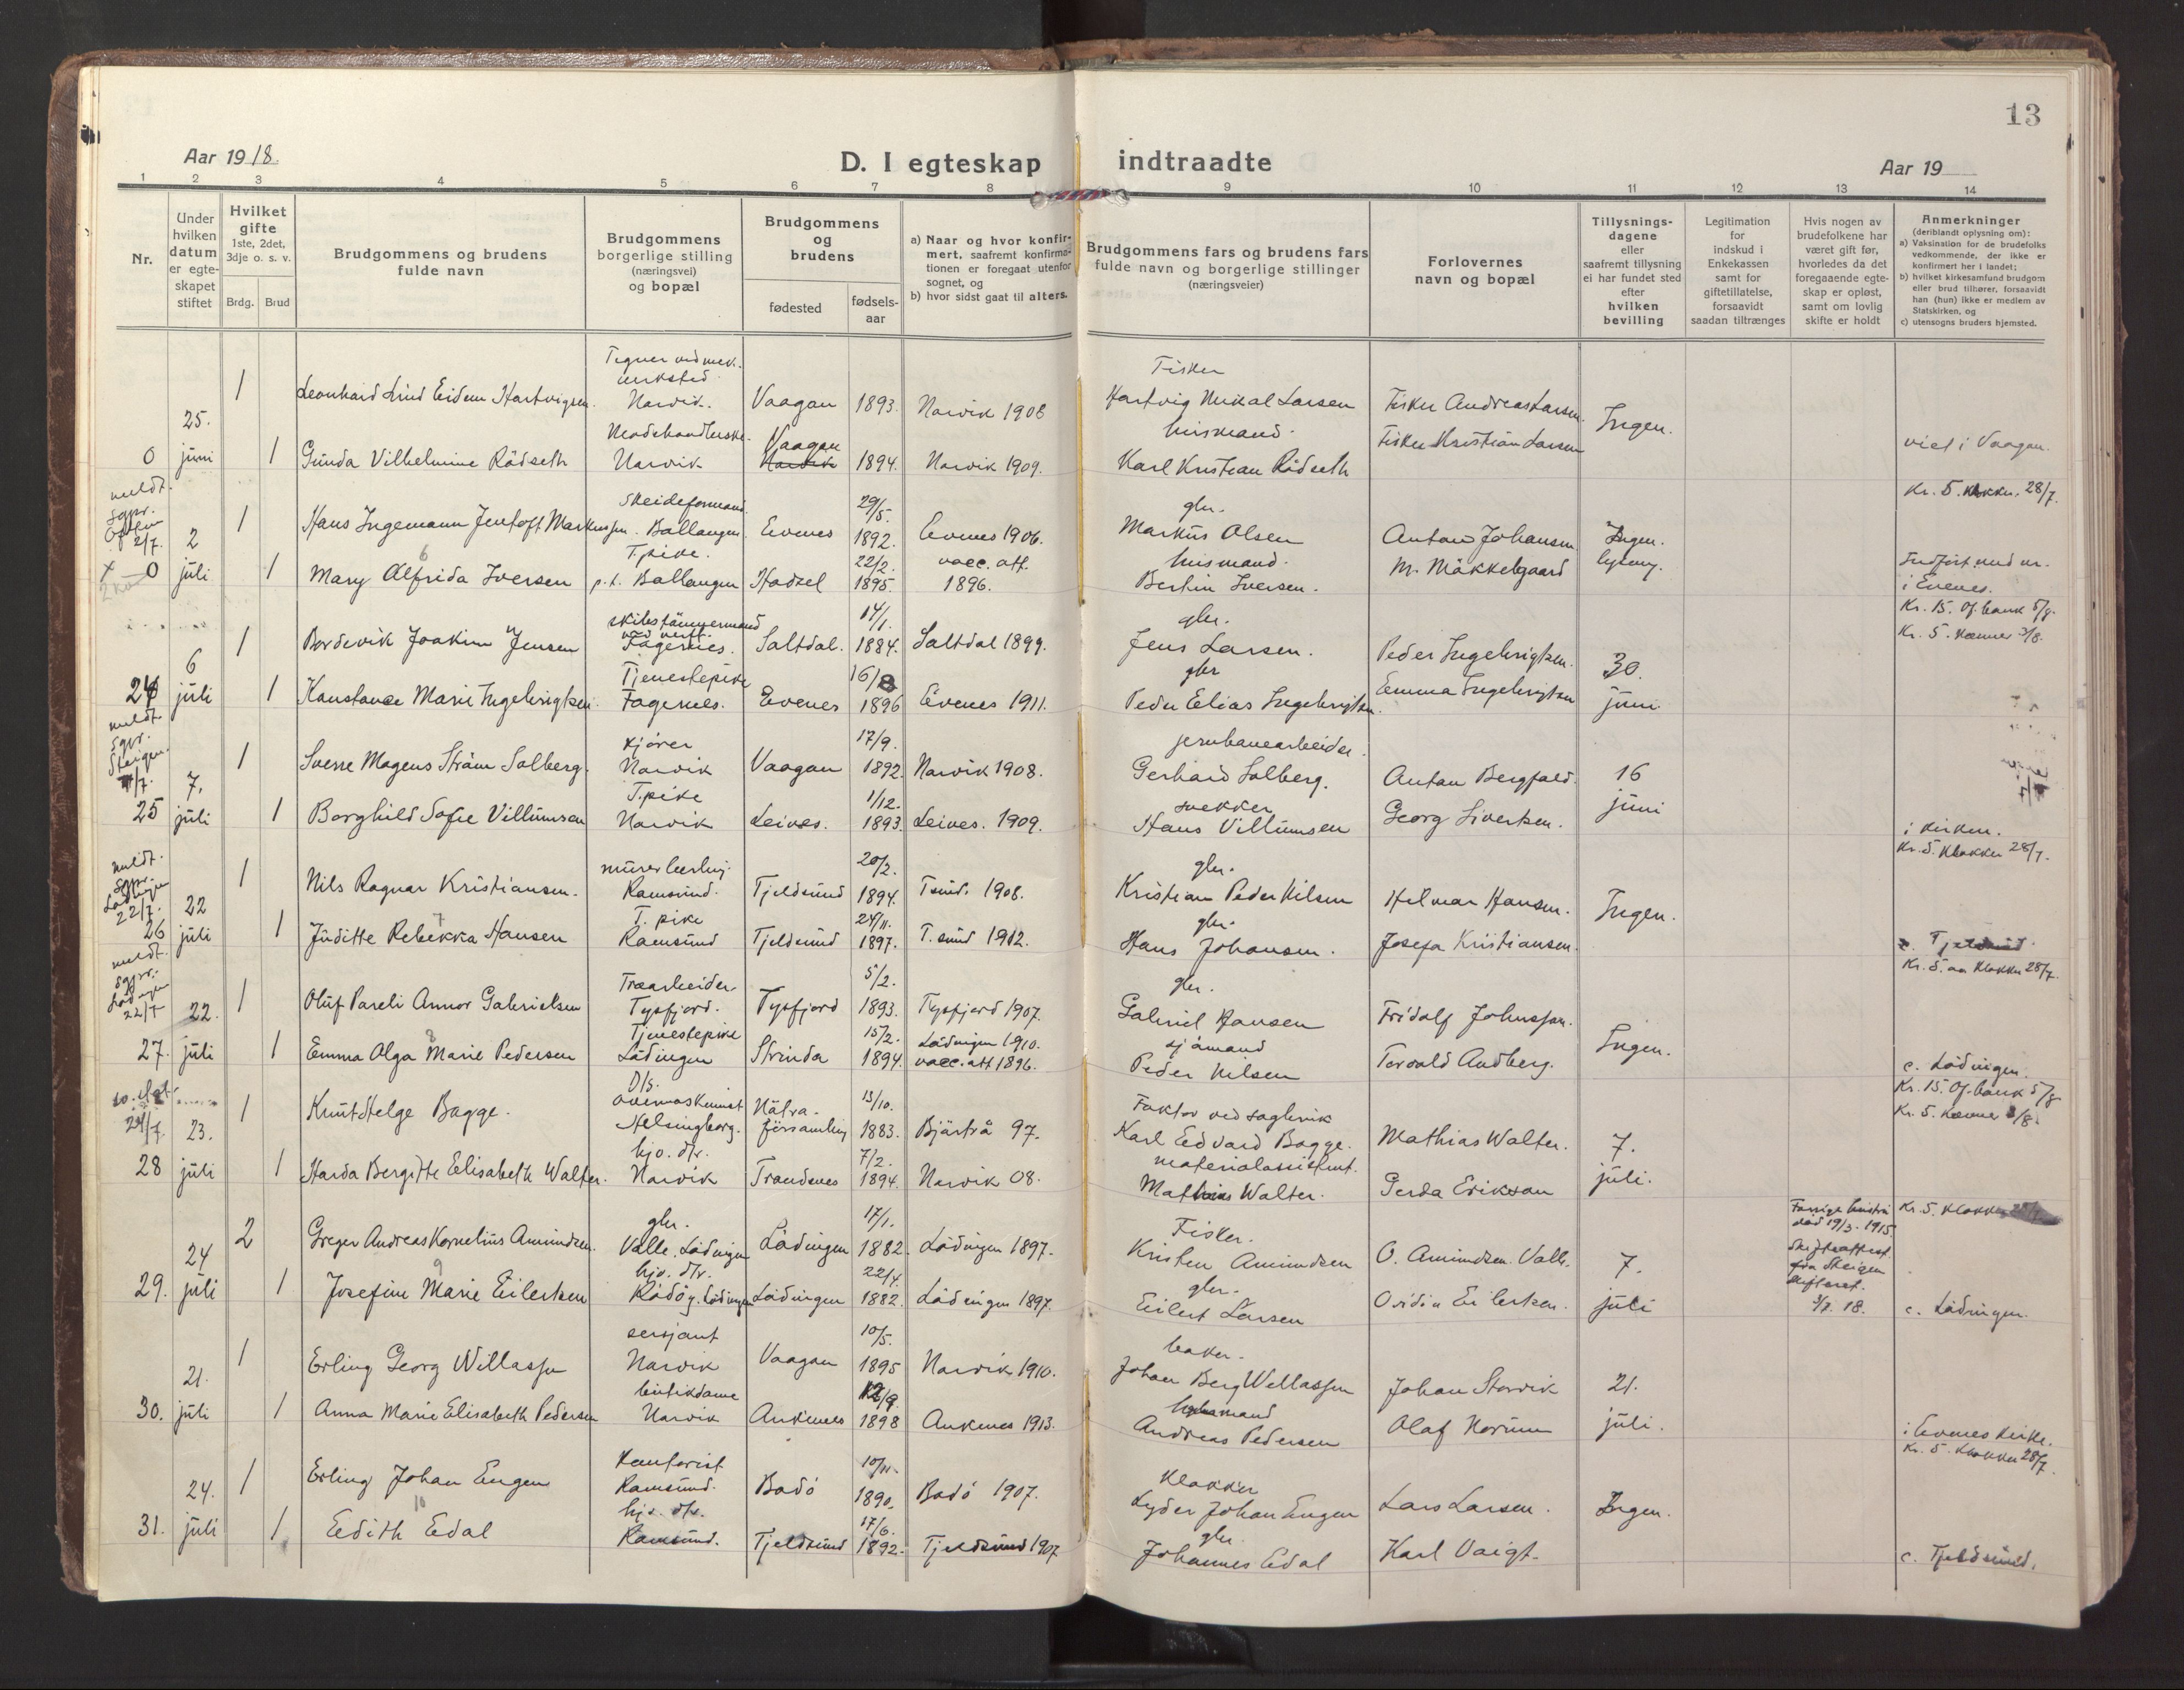 13
Aar 1918.
D. I egteskap indtraadte
Aar 19
1 2 3 4 5 6 7 8 9 10 11 12 13 14
Nr.
Under hvilken datum er egteskapet stiftet
Hvilket gifte
1ste, 2det, 3dje o. s. v.
Brdg. Brud
Brudgommens og brudens fulde navn
Brudgommens borgerlige stilling (næringsvei) og bopæl
Brudgommens og brudens
fødested
fødsels-aar
a) Naar og hvor konfirmert, saafremt konfirmationen er foregaat utenfor sognet, og
b) hvor sidst gaat til alters.
Brudgommens fars og brudens fars fulde navn og borgerlige stillinger (næringsveier)
Forlovernes navn og bopæl
Tillysningsdagene eller saafremt tillysning ei har fundet sted efter hvilken bevilling
Legitimation for indskud i Enkekassen samt for giftetillatelse, forsaavidt saadan tiltrænges
Hvis nogen av brudefolkene har været gift før, hvorledes da det foregaaende egteskap er opløst, samt om lovlig skifte er holdt
Anmerkninger
(deriblandt oplysning om):
a) Vaksination for de brudefolks vedkommende, der ikke er konfirmert her i landet;
b) hvilket kirkesamfund brudgom eller brud tilhører, forsaavidt han (hun) ikke er medlem av Statskirken, og
c) utensogns bruders hjemsted.
25. juni
0
1 Leonhard Lind Eidem Hartvigsen. Tegner ved mek. verksted Narvik. Vaagan 1893. Narvik 1908
Fisker Hartvig Mikal Larsen Fisker Andreas Larsen. Ingen.
1 Gunda Vilhelmine Rådseth Modehandlerske. Narvik Vaagan 1894. Narvik 1909.
husmand. Karl Kristian Rådseth Fisker Kristian Larsen viet i Vaagan.
meldt. sgpr. Ofoten 2/7. 2 juli
0
1 Hans Ingemann Jentoft Markussen. Skeideformand. Ballangen Evenes 29/5. 1892. Evenes 1906.
gbr. Markus Olsen Anton Johansen Ingen. Kr. 5. klokker. 28/7.
1 Mary Alfrida Iversen T.pike. p.t. Ballangen Hadsel 22/2. 1895. vacc. att. 1896.
husmand. Bertin Iversen. M. Måkkelgaard lysning. Indført und nr. i Evenes.
6 juli
24
1 Bordevik Joakim Jensen skibstømmermand ved verft. Fagernes. Saltdal. 14/1. 1884. Saltdal 1899.
gbr. Jens Larsen. Peder Ingebrigtsen. 30. juni Kr. 15. Of. bank 5/8. Kr. 5. Kæmner 3/8.
1 Konstance Marie Ingebrigtsen Tjenestepike Fagernes. Evenes 16/8 1896 Evenes 1911.
gbr Peder Elias Ingebrigtsen. Emma Ingebrigtsen
meldt. sgpr. Steigen 7. juli
25
1 Sverre Magens Strøm Solberg. Kjører Narvik Vaagan 17/9. 1892. Narvik 1908.
jernbanearbeider. Gerhard Solberg. Anton Bergfald. 16 juni
1 Borghild Sofie Villumsen T.pike Narvik Leines. 1/12. 1893. Leines. 1909.
snekker Hans Villumsen Georg Sivertsen. i kirken.
meldt. sgpr. Lødingen 22/7. 22 juli
26
1 Nils Ragnar Kristiansen. murerlærling. Ramsund. Tjeldsund 20/2. 1894. Tsund. 1908.
gbr. Kristian Peder Nilsen Helmar Hansen. Ingen. Kr. 5. Klokker 28/7.
1 Juditte Rebekka Hansen 7 T. pike Ramsund Tjeldsund 24/11. 1897. T. sund 1912.
gbr. Hans Johansen. Josefa Kristiansen. c. Tjeldsund.
meldt. sgpr. Lødingen 22/7 22. juli
27.
1 Oluf Pareli Annor Gabrielsen Traarbeider Tysfjord. Tysfjord 5/2. 1893. Tysfjord 1907.
gbr. Gabriel Hansen Fridolf Johnsson. Ingen. Kr. 5. aa Klokker 28/7.
1 Emma Olga Marie Pedersen 8 Tjenestepike Lødingen Strinda 15/2. 1894. Lødingen 1910. vacc. att 1896.
sjømand Peder Nilsen Torvald Andberg. c. Lødingen.
24/7 23. juli
28
1 Knut Helge Bagge. D/s. övermaskinist Helsingborg. Nätra församling 13/10. 1883. Bjärtrå 97.
Faktor ved sagbruk Karl Edvard Bagge. Mathias Walter. 7. juli. Kr. 15. Of. bank 5/8 Kr. 5. Kæmner 3/8.
1 Harda Bergitte Elisabeth Walter. hjv. dtr. Narvik Trondenes 7/2. 1894. Narvik 08.
materialassistent. Mathias Walter. Gerda Erikson
24 juli
29.
2 Greger Andreas Kornelius Amundsen. gbr. Valle, Lødingen Lødingen 17/1. 1882. Lødingen 1897.
Fisker. Kristen Amundsen O. Amundsen. Valle. 7. juli Forrige hustru død 19/3. 1915. Skifteattest fra Steigen skifteret. 3/7. 18. Kr. 5. Klokker
1 Josefine Marie Eilertsen 9 hjv. dtr. Rådøy. Lødingen Lødingen 22/4. 1882. Lødingen 1897.
gbr. Eilert Larsen Ovidia Eilertsen. c. Lødingen.
21. juli
30.
1 Erling Georg Willassen sersjant Narvik Vaagan 10/5. 1895 Narvik 1910.
baker. Johan Berg Willassen Johan Storvik 21. juli.
1 Anna Marie Elisabeth Pedersen butikdame Narvik Ankenes 12/9. 1898 Ankenes 1913.
husmand Andreas Pedersen Olaf Norum i Evenes kirke.
24. juli
31.
1 Erling Johan Engen Kontorist Ramsund. Bodø 10/11. 1890. Bodø 1907.
Klokker Lyder Johan Engen Lars Larsen. Ingen. Kr. 5. Klokker 28/7.
1 Edith Edal 10 hjv. dtr. Ramsund. Tjeldsund 17/6. 1892. Tjeldsund 1907
gbr Johannes Edal Karl Voigt. c. Tjeldsund.